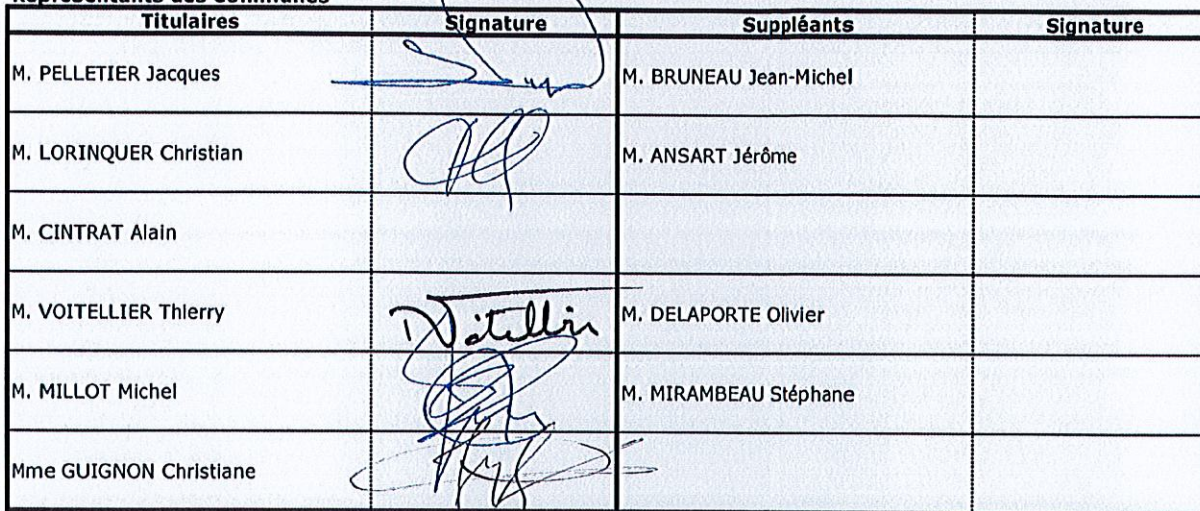 Représentants des Communes
Titulaires Signature Suppléants Signature
M. PELLETIER Jacques M. BRUNEAU Jean-Michel
M. LORINQUER Christian M. ANSART Jérôme
M. CINTRAT Alain
M. VOITELLIER Thierry Voitellier M. DELAPORTE Olivier
M. MILLOT Michel M. MIRAMBEAU Stéphane
Mme GUIGNON Christiane